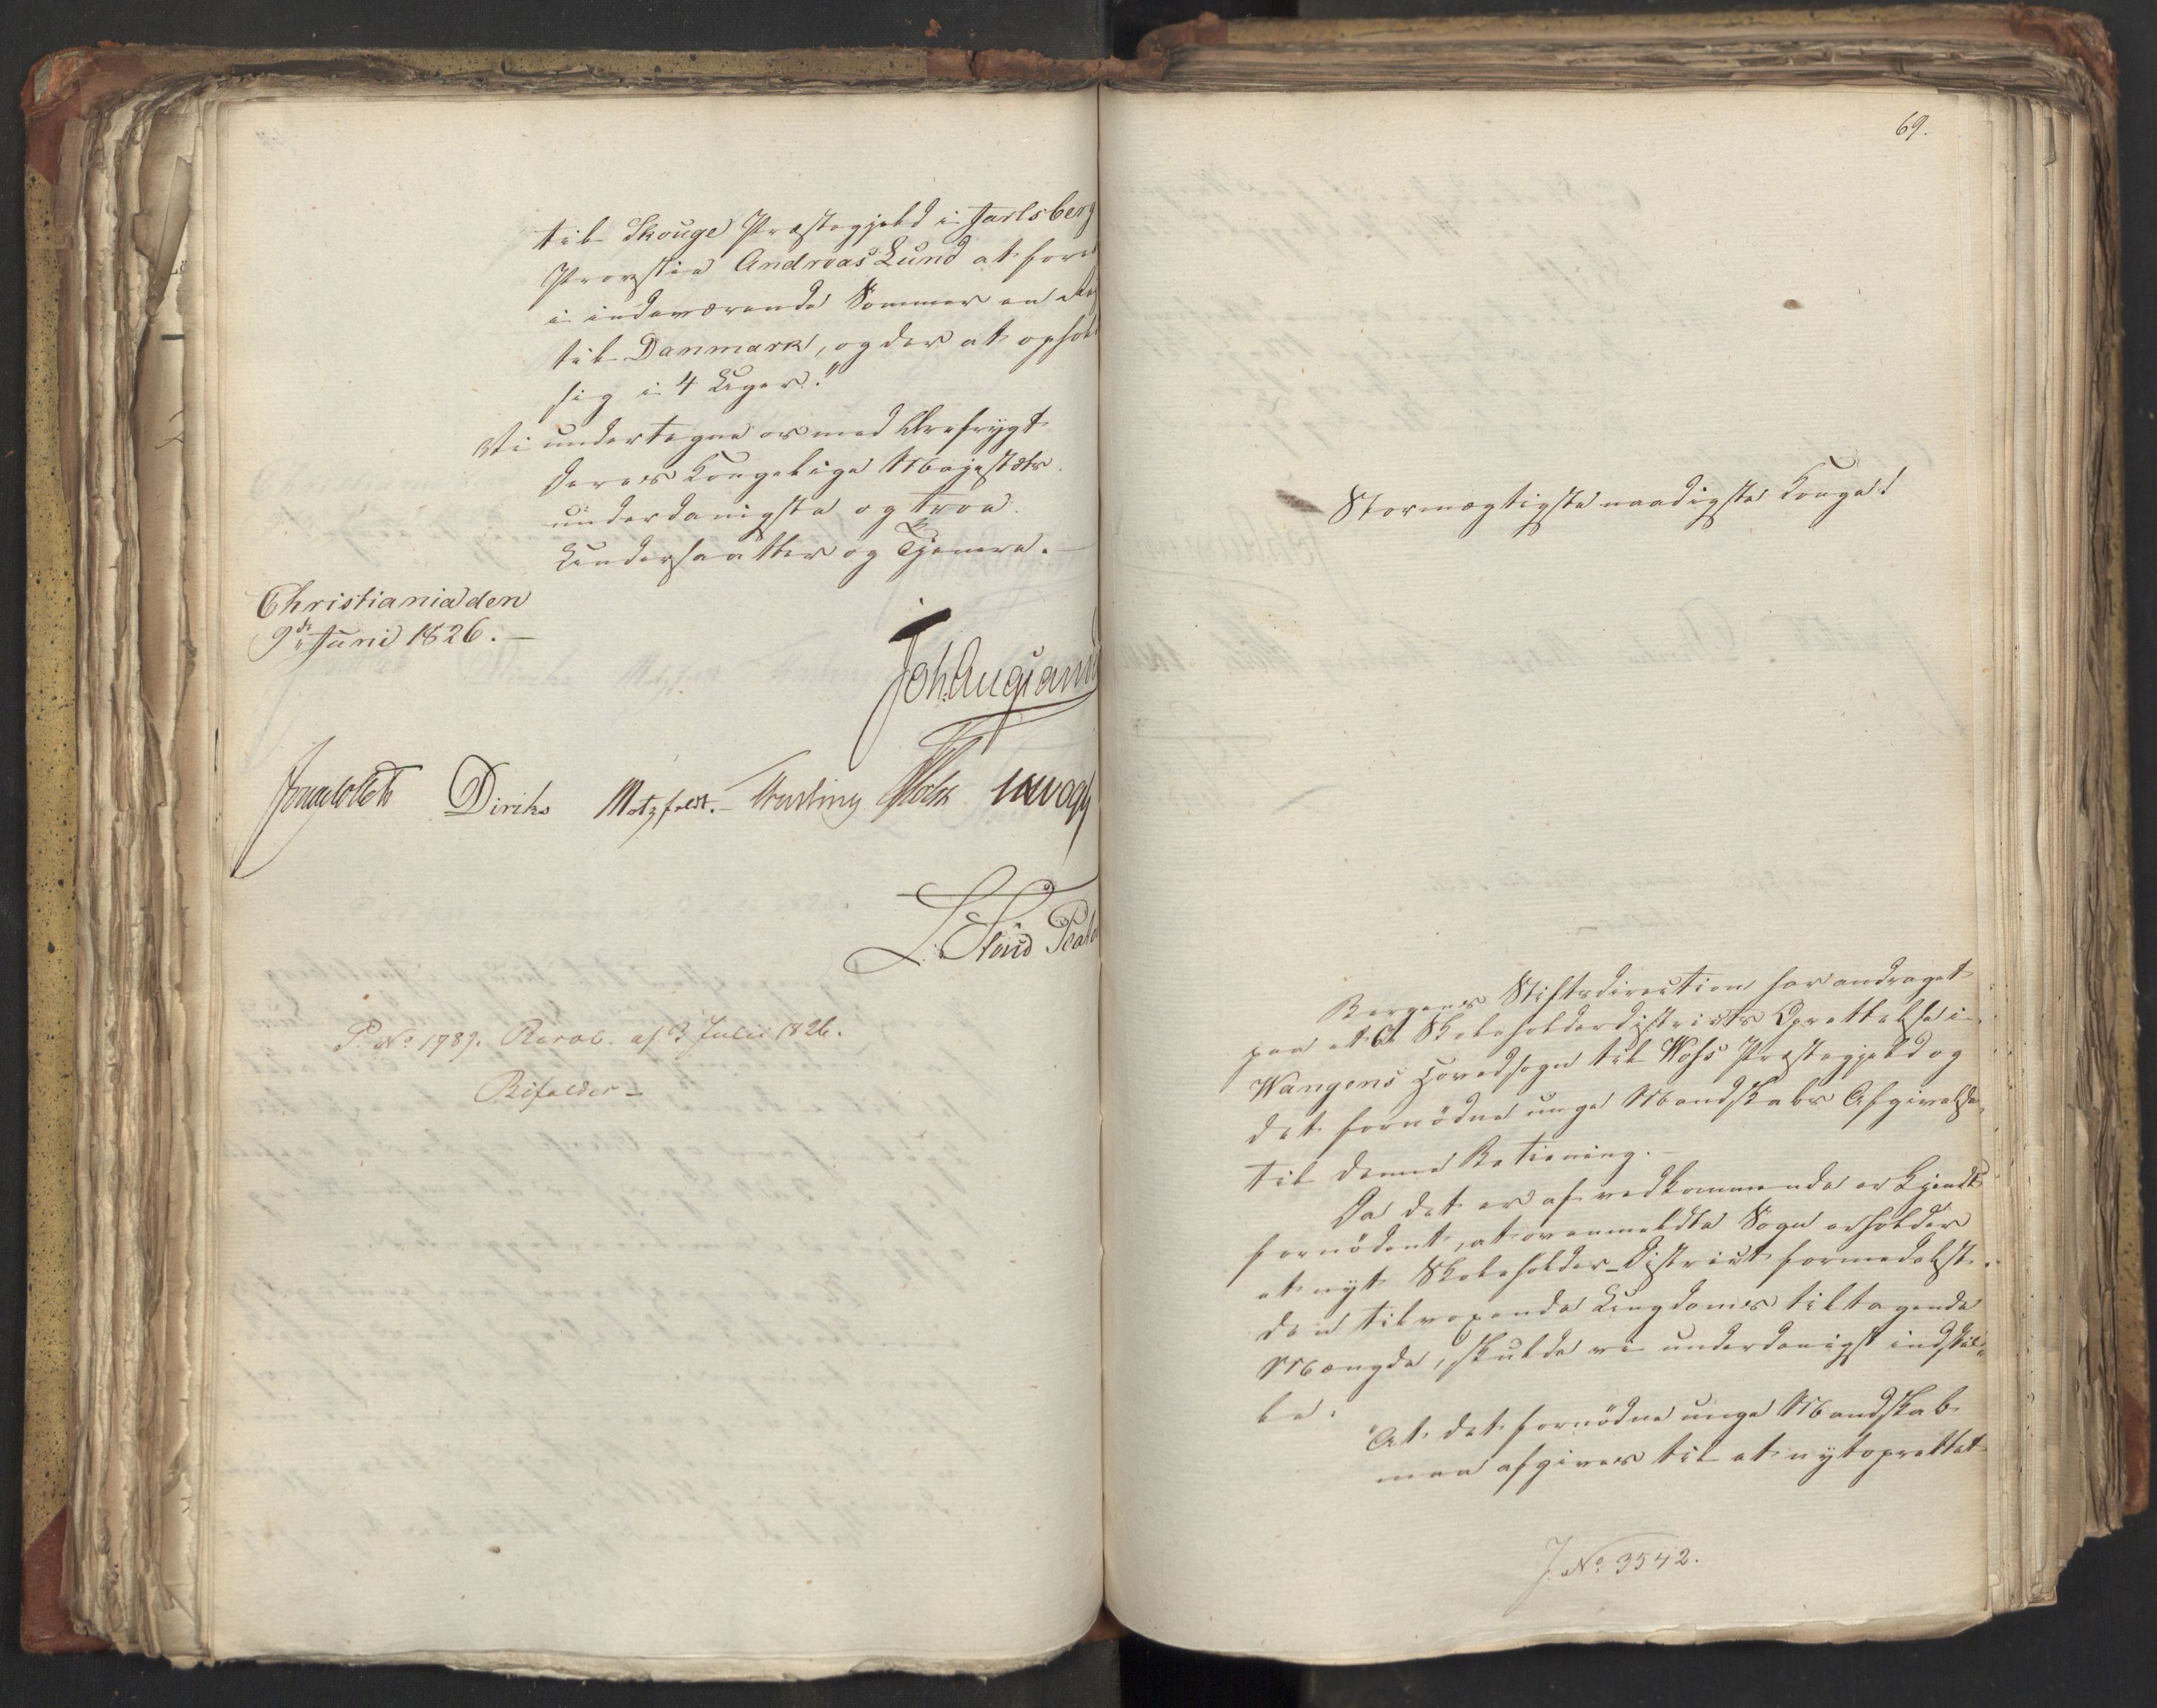 til Skouge Præstegjeld i Jarlsberg
Provstie Andreas Lund at fore
i indeværende Sommer en
til Danmark, og der at ophol
sig i 4 Uger."
Vi undertegne os med Ærefrygt
Deres Kongelige Majestæts
underdanigste og troe
Undersaatter og Tjenere.
Christiania den
9de Juni 1826.
Joh. Aug. Sand
Jonas Collett Diriks Motzfeldt. Treschow Holst Vogt
P. No 1789. Resol. af 3 Julii 1826.
Bifaldes
69.
Stormægtigste naadigste Konge!
Bergens Stiftsdirection har andraget
paa et Skoleholderdistricts Oprettelse i
Wangens Hovedsogn til Woss Præstegjeld og
det fornödne unge Mandskabs Afgivelse
til denne Betiening.
Da det er af vedkommende erkjendt
fornödent, at ovenmeldte Sogn erholder
et nyt Skoleholder-District formedelst
den tilvoxende Ungdoms tiltagende
Mængde, skulde vi underdanigst indstil-
le:
"At det fornödne unge Mandskab
maa afgives til et nytoprettet
J. No 3542.